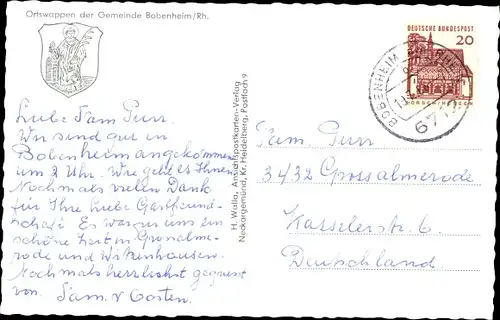 Ortswappen der Gemeinde Bobenheim/Rh.
Liebe Fam Purr.
Wir sind gut in
Bobenheim angekommen
um 3 Uhr. Wie geht es Ihnen
Nochmals vielen Dank
für Ihre liebe Gastfreund-
schaft. Es war für uns ein
schöne Zeit in Grossalme-
rode und Witzenhausen.
Nochmals herzlichst gegrüsst
von. Fam. v Oosten.
H. Walla, Ansichtspostkarten-Verlag
Neckargemünd, Kr. Heidelberg, Postfach 9
DEUTSCHE BUNDESPOST
20
LORSCH/HESSEN
BOBENHEIM
671
Fam. Purr
3432 Grossalmerode
Kasselerstr. 6
Deutschland.